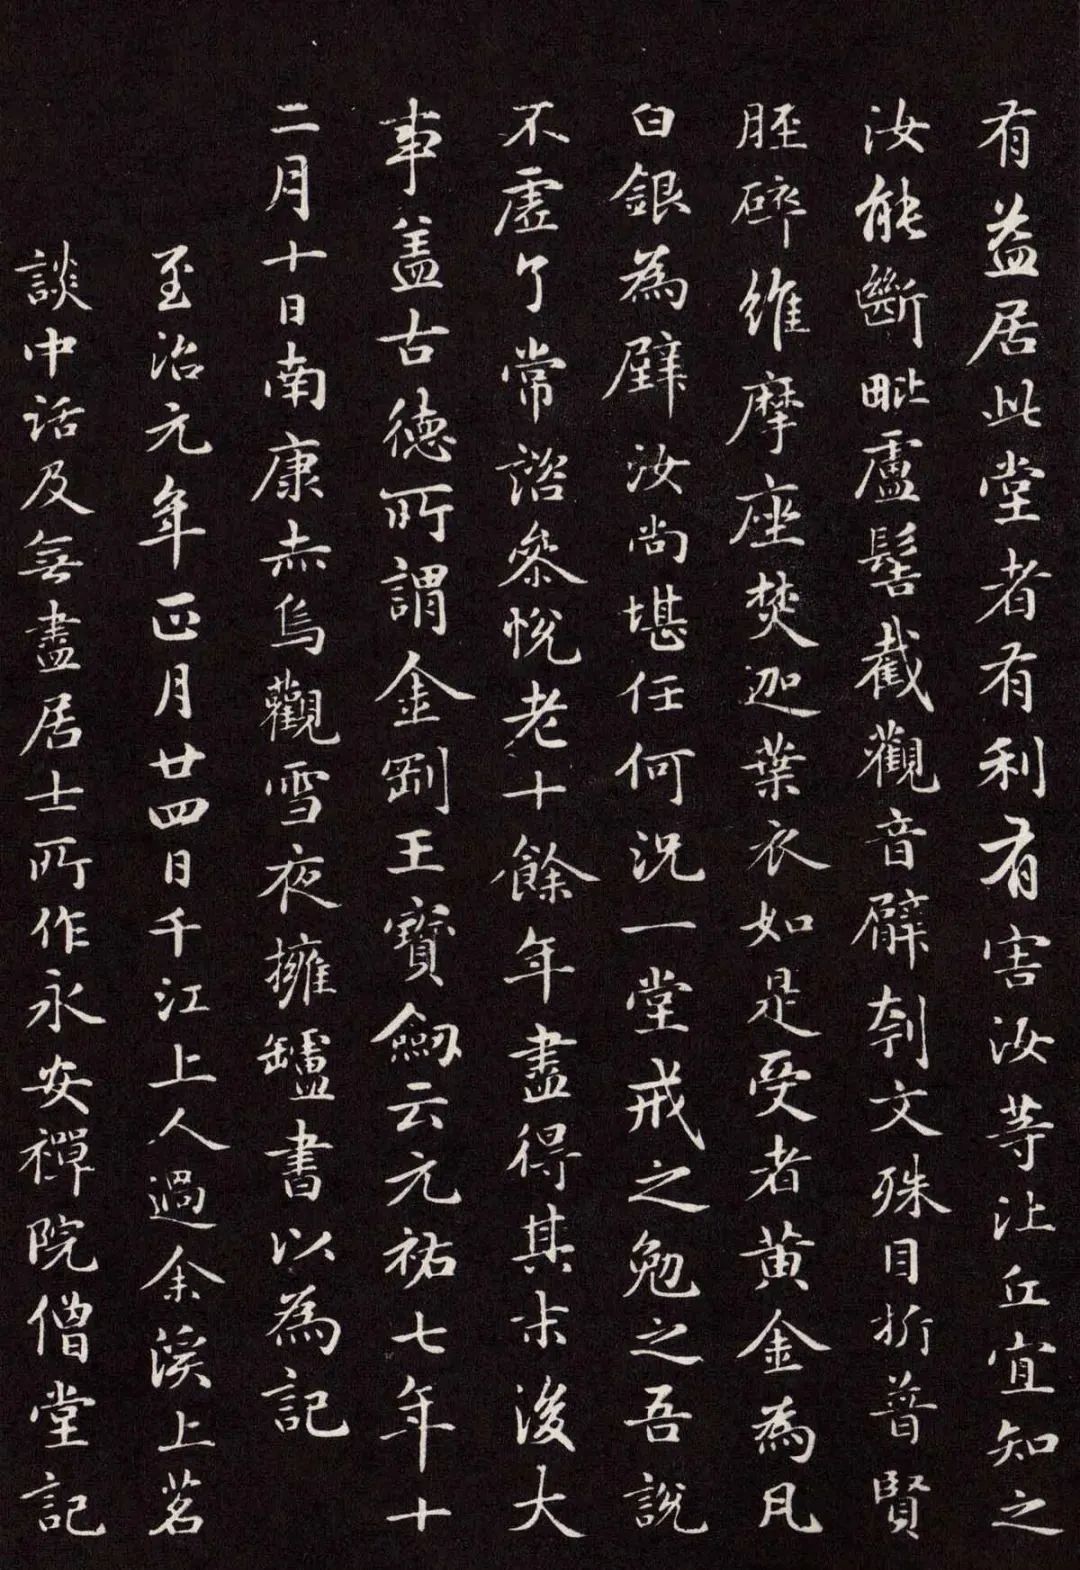 有益居此堂者有利有害汝等比丘宜知之
汝能斷毗盧髻截觀音臂刳文殊目折普賢
脛碎維摩座焚迦葉衣如是受者黄金為瓦
白銀為壁汝尚堪任何況一堂戒之勉之吾說
不虛了常諮參悅老十餘年盡得其末後大
事盖古德所謂金剛王寶劒云元祐七年十
二月十日南康赤烏觀雪夜擁爐書以為記
至治元年正月廿四日千江上人過余溪上茗
談中話及無盡居士所作永安禪院僧堂記